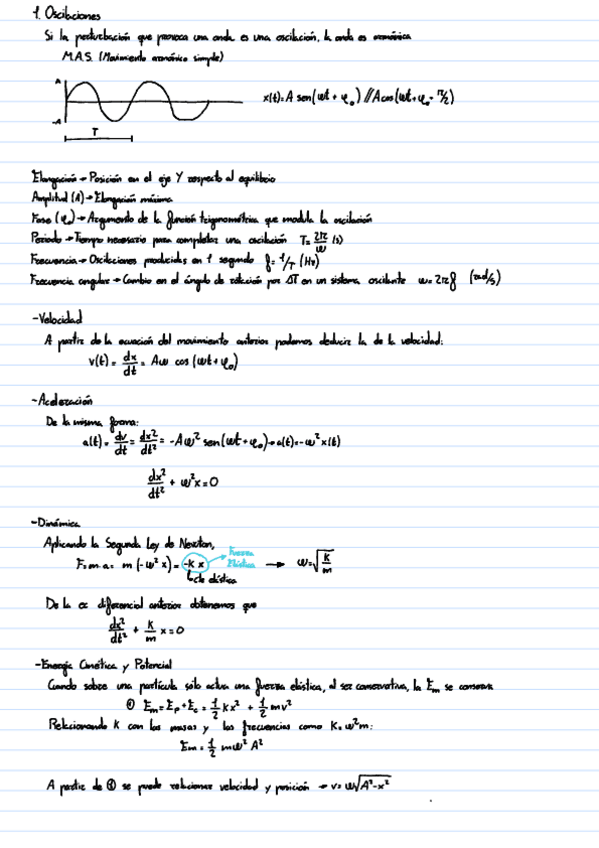 1. Oscilaciones
Si la perturbación que provoca una onda es una oscilación, la onda es armónica
M.A.S. (Movimiento armónico simple)
A
-A
T
x(t)= A sen(ωt + φ₀) // A cos(ωt + φ₀ - π/2)
Elongación → Posición en el eje Y respecto al equilibrio
Amplitud (A) → Elongación máxima
Fase (φ₀) → Argumento de la función trigonométrica que modula la oscilación
Periodo → Tiempo necesario para completar una oscilación T= 2π/ω (s)
Frecuencia → Oscilaciones producidas en 1 segundo f= 1/T (Hz)
Frecuencia angular → Cambio en el ángulo de rotación por ΔT en un sistema oscilante ω= 2πf (rad/s)
-Velocidad
A partir de la ecuación del movimiento anterior podemos deducir la de la velocidad:
v(t)= dx/dt = Aω cos (ωt + φ₀)
-Aceleración
De la misma forma:
a(t)= dv/dt = dx²/dt² = -Aω² sen(ωt + φ₀) → a(t)= -ω² x(t)
dx²/dt² + ω²x = 0
-Dinámica
Aplicando la Segunda Ley de Newton,
F= m·a = m (-ω² x) = -k x → Fuerza Elástica → ω=√(k/m)
↳ cte elástica
De la ec diferencial anterior obtenemos que
dx²/dt² + k/m x = 0
-Energía Cinética y Potencial
Cuando sobre una partícula solo actua una fuerza elástica, al ser conservativa, la Em se conserva
① Em = Ep + Ec = 1/2 kx² + 1/2 mv²
Relacionando K con las masas y las frecuencias como K= ω²m:
Em = 1/2 mω² A²
A partir de ① se puede relacionar velocidad y posición → v= ω√(A²-x²)